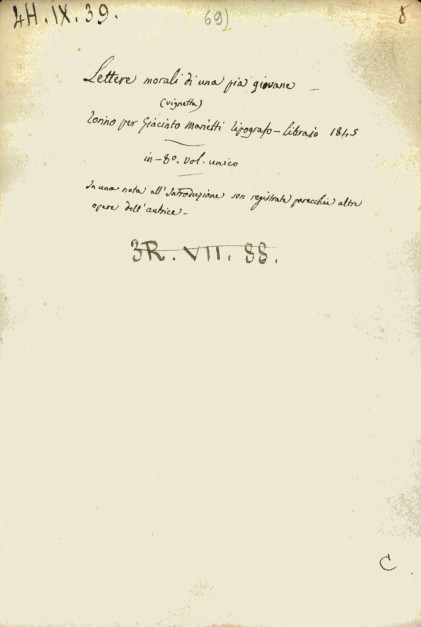 4H.IX.39.
69)
8
Lettere morali di una pia giovane —
(vignetta)
Torino per Giacinto Marietti tipografo-libraio 1845
in-8º. vol. unico
In una nota all'Introduzione son registrate parecchie altre
opere dell'autrice -
3R. VII. 88.
C